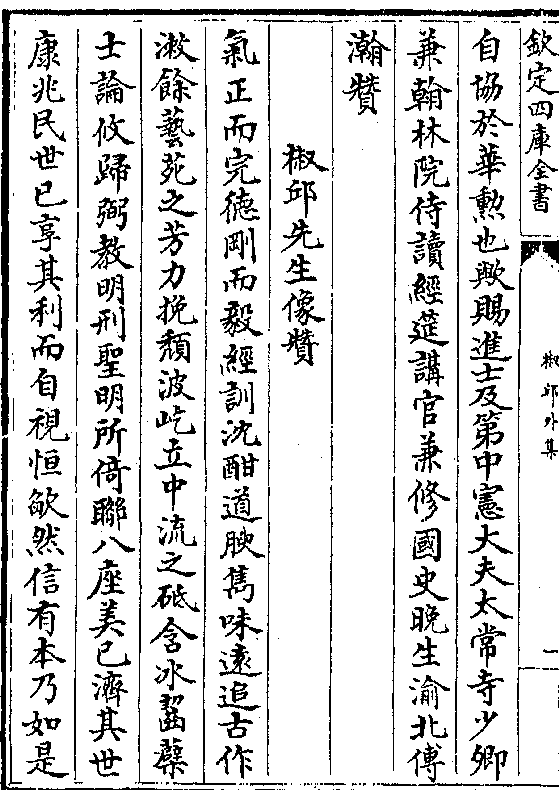 欽定四庫全書
椒邱外集
一
自協於華勲也歟賜進士及第中憲大夫太常寺少卿
兼翰林院侍讀經筵講官兼修國史晩生渝北傅
瀚贊
椒邱先生像贊
氣正而完徳剛而毅經訓沈酣道腴雋味逺追古作
漱餘藝苑之芳力挽頽波屹立中流之砥含冰齧蘖
士論攸歸弼教明刑聖明所倚聯八座美已濟其世
康兆民世已享其利而自視恒欿然信有本乃如是